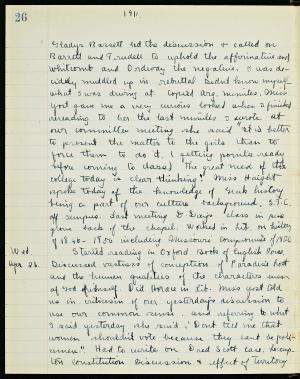 26
1911
Gladys Barrett led the discussion & called on
Barrett and Trudell to uphold the affirmative and
Whitcomb and Ordway the negative. I was de-
cidedly muddled up in rebuttal didn't know myself
what I was driving at. Copied Arg. minutes. Miss
Yost gave me a very curious looked when I finished
rereading to her the last minutes I wrote at
our committee meeting she said "It is better
to present the matter to the girls than to
force them to do it. (getting points ready
before coming to class) The great need of the
college today is clear thinking". Miss Haight
spoke today of the knowledge of Greek history
being a part of our culture background. S.P.C.
off campus. Last meeting Dr Days' class in pine
grove back of the chapel. Worked in lit. on history
of 1840-1850 including Missouri Compromise of 1820
Wed.
Apr. 26.
Started reading in Oxford Book of English Prose.
Discussed vastness of conception of Paradise Lost
and the human qualities of the characters even
of God himself. Did Horace in lit. Miss Yost told
us in criticism of our yesterday's discussion to
use our common sense. and referring to what
I said yesterday she said, "Don't tell me that
women shouldn't vote because they can't be police-
men". Had to write on Dred Scott case, Lecomp-
ton Constitution Discussion & effect of Territory